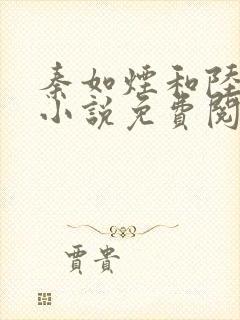 秦如煙和陸
小說免費閱
賈貴